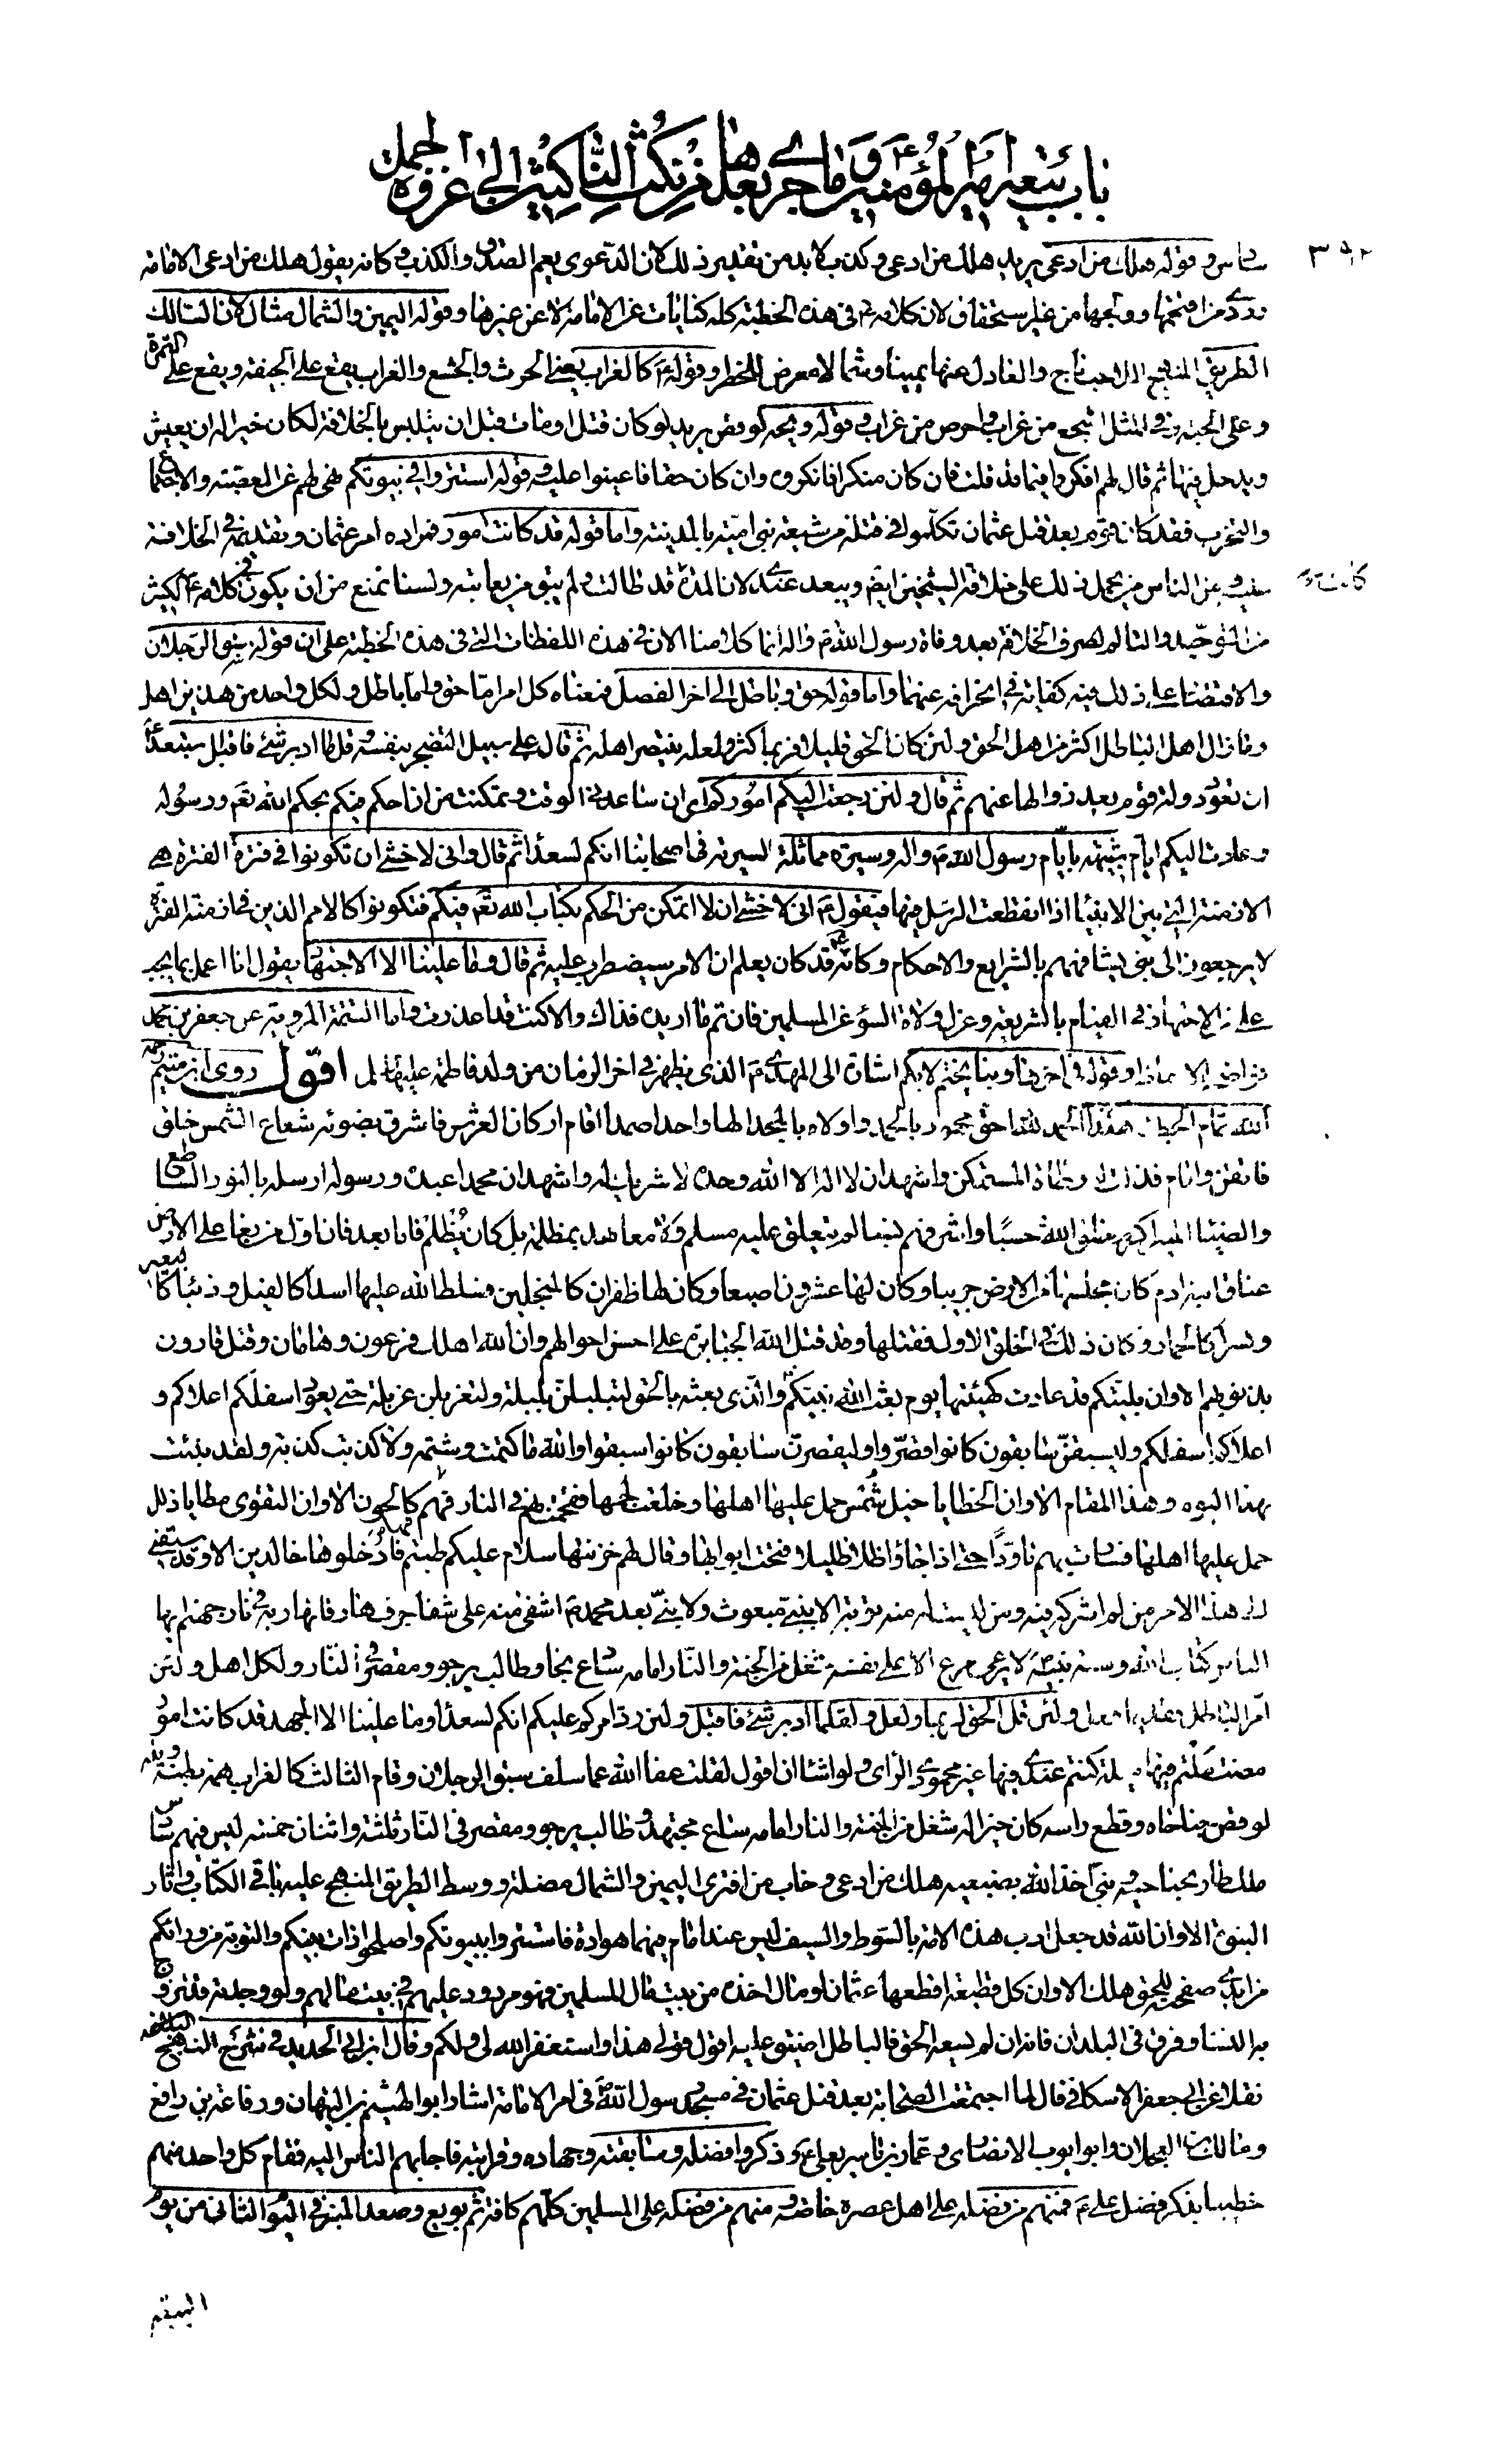 باب بيعة امير المؤمنين ع وما جرى بعدها من نكث الناكثين الى غزوة الجمل
٣٩٢
سادس وقوله هلك من ادعى يريد هلك من ادعى وكذب لا بد من تقدير ذلك لان الدعوى يعم الصدق والكذب وكانه يقول هلك من ادعى الامامة
وردى من اقتحمها وولجها من غير استحقاق لان كلامه ع في هذه الخطبة كله كنايات عن الامامة لا عن غيرها وقوله اليمين والشمال مثال لان السالك
الطريق المنهج اللاحب ناج والعادل عنها يمينا وشمالا معرض للخطر وقوله ع كالغراب يعني الحرث والجشع والغراب يقع على الجيفة ويقع على التمرة
وعلى الحبة وفي المثل اشجع من غراب واحرص من غراب وقوله ويحه لو قص يريد لو كان قتل او مات قبل ان يتلبس بالخلافة لكان خيرا له ان يعيش
ويدخل فيها ثم قال لهم افكروا فيما قد قلت فان كان منكرا فانكروه وان كان حقا فاعينوا عليه وقوله استتروا في بيوتكم نهي لهم عن العصبية والاجتماع
والتحزب فقد كان قوم بعد قتل عثمان تكلموا في قتله من شيعة بني امية بالمدينة واما قوله قد كانت امور فمراده امر عثمان وتقديمه في الخلافة
عليه ومن الناس من يحمل ذلك على خلافة الشيخين ايضا ويبعد عندي لان المدة قد طالت ولم يبق من يعاتبه ولسنا نمنع من ان يكون في كلامه ع الكثير
من التوجد والتالم لصرف الخلافة بعد وفاة رسول الله ص واله انما كلامنا الان في هذه اللفظات التي في هذه الخطبة على ان قوله سبق الرجلان
والاقتصار على ذلك فيه كفاية في انحرافه عنهما واما قوله حق وباطل الى اخر الفصل فمعناه كل امر اما حق واما باطل ولكل واحد من هذين اهل
وما زال اهل الباطل اكثر من اهل الحق ولئن كان الحق قليلا فربما كثر ولعله ينتصر اهله ثم قال على سبيل التضجر بنفسه وقلما ادبر شئ فاقبل استبعد ع
ان تعود دولة قوم بعد زوالها عنهم ثم قال ولئن رجعت اليكم اموركم اي ان ساعدني الوقت وتمكنت من ان احكم فيكم بحكم الله تع ورسوله
وعادت اليكم ايام شبيهة بايام رسول الله ص واله وسيرة مماثلة لسيرته في اصحابنا انكم لسعداء ثم قال واني لاخشى ان تكونوا في فترة الفترة هي
الازمنة التي بين الانبياء اذا انقطعت الرسل فيها فيقول ع اني لاخشى ان لا اتمكن من الحكم بكتاب الله تع فيكم فتكونوا كالامم الذين في ازمنة الفترة
لا يرجعون الى نبي يشافههم بالشرايع والاحكام وكانه ع قد كان يعلم ان الامر سيضطرب عليه ثم قال وما علينا الا الاجتهاد يقول انا اعمل بما يجب
علي من الاجتهاد في القيام بالشريعة وعزل ولاة السوء عن المسلمين فان تم ما اريده فذاك والا كنت قد اعذرت واما التتمة المروية عن جعفر بن محمد
فواضحة الالفاظ وقوله في اخرها وبنا يختم لا بكم اشارة الى المهدي ع الذي يظهر في اخر الزمان من ولد فاطمة عليها السلام اقول روى ابن ميثم رحمه
الله تمام الخطبة هكذا الحمد لله احق محمود بالحمد واولاه بالمجد الها واحدا صمدا اقام اركان العرش فاشرق بضوئه شعاع الشمس خلق
فاتقن واقام فذلت له وطأة المستمكن واشهد ان لا اله الا الله وحده لا شريك له واشهد ان محمدا عبده ورسوله ارسله بالنور الساطع
والضياء المنير اكرم خلق الله حسبا واشرفهم نسبا لم يتعلق عليه مسلم ولا معاهد بمظلمة بل كان يظلم فاما بعد فان اول من بغى على الارض
عناق ابنة ادم كان مجلسها من الارض جريبا وكان لها عشرون اصبعا وكان لها ظفران كالمنجلين فسلط الله عليها اسدا كالفيل وذئبا كالبعير
ونسرا كالحمار وكان ذلك في الخلق الاول فقتلها وقد قتل الله الجبابرة على احسن احوالهم وان الله اهلك فرعون وهامان وقتل قارون
بذنوبهم الا وان بليتكم قد عادت كهيئتها يوم بعث الله نبيكم ص والذي بعثه بالحق لتبلبلن بلبلة ولتغربلن غربلة حتى يعود اسفلكم اعلاكم و
اعلاكم اسفلكم وليسبقن سابقون كانوا قصروا وليقصرن سابقون كانوا سبقوا والله ما كتمت وشمة ولا كذبت كذبة ولقد نبئت
بهذا اليوم وهذا المقام الا وان الخطايا خيل شمس حمل عليها اهلها وخلعت لجمها فتقحمت بهم في النار فهم فيها كالحون الا وان التقوى مطايا ذلل
حمل عليها اهلها فسارت بهم تاودا حتى اذا جاؤا ظلا ظليلا فتحت ابوابها وقال لهم خزنتها سلام عليكم طبتم فادخلوها خالدين الا وقد سبقني
الى هذا الامر من لم اشركه فيه ومن ليست له منه توبة الا بنبي مبعوث ولا نبي بعد محمد ص اشفى منه على شفا جرف هار فانهار به في نار جهنم ايها
الناس كتاب الله وسنة نبيه ص لا يرعى مرع الا على نفسه شغل من الجنة والنار امامه ساع نجا وطالب يرجو ومقصر في النار ولكل اهل ولئن
امر الباطل فقديما فعل ولئن قل الحق لربما ولعل ولقلما ادبر شئ فاقبل ولئن رد امركم عليكم انكم لسعداء وما علينا الا الجهد قد كانت امور
مضت ملتم فيها ميلة كنتم عندي فيها غير محمودي الراي ولو اشاء ان اقول لقلت عفا الله عما سلف سبق الرجلان وقام الثالث كالغراب همه بطنه ويله
لو قص جناحاه وقطع راسه كان خيرا له شغل من الجنة والنار امامه ساع مجتهد وطالب يرجو ومقصر في النار ثلثة واثنان خمسة ليس فيهم سادس
ملك طار بجناحيه ونبي اخذ الله بضبعيه هلك من ادعى وخاب من افترى اليمين والشمال مضلة ووسط الطريق المنهج عليه باقي الكتاب واثار
النبوة الا وان الله قد جعل ادب هذه الامة بالسوط والسيف ليس عند امام فيهما هوادة فاستتروا ببيوتكم واصلحوا ذات بينكم والتوبة من ورائكم
من ابدى صفحته للحق هلك الا وان كل قطيعة اقطعها عثمان او مال اخذه من بيت مال المسلمين فهو مردود عليهم في بيت مالهم ولو وجدته قد تزوج
به النساء وفرق في البلدان فانه ان لم يسعه الحق فالباطل اضيق عليه اقول قولي هذا واستغفر الله لي ولكم وقال ابن ابي الحديد في شرح النهج البلاغة
نقلا عن ابي جعفر الاسكافي قال لما اجتمعت الصحابة بعد قتل عثمان في مسجد رسول الله ص في امر الامامة اشار ابو الهيثم بن التيهان ورفاعة بن رافع
ومالك بن العجلان وابو ايوب الانصاري وعمار بن ياسر بعلي ع وذكروا فضله وسابقته وجهاده وقرابته فاجابهم الناس اليه فقام كل واحد منهم
خطيبا يذكر فضل علي ع فمنهم من فضله على اهل عصره خاصة ومنهم من فضله على المسلمين كلهم كافة ثم بويع وصعد المنبر في اليوم الثاني من يوم
البيعة